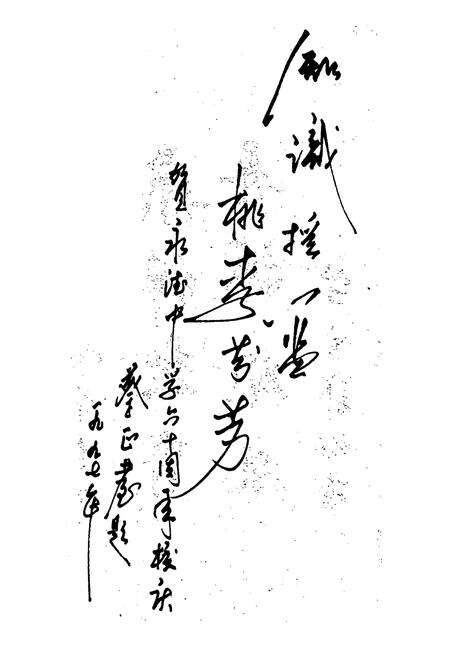 知識摇篮
桃李芬芳
贺永中学六十周年校庆
正题
一九九七年